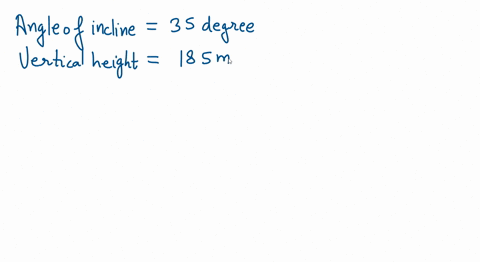 Angle of incline = 35 degree
Vertical height = 185 m